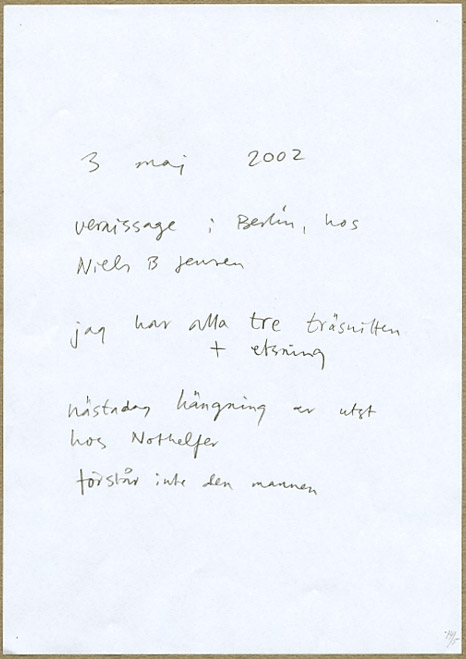 3 maj 2002
vernissage i Berlin, hos
Niels B Jensen
jag har alla tre träsnitten
+ etsning
hängning av
hos Nothelfer
förstår inte den mannen